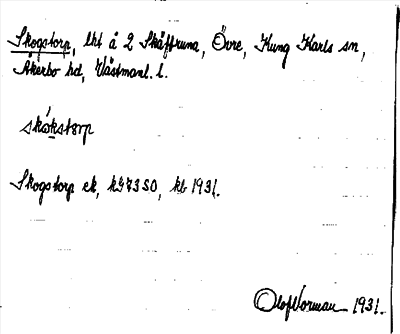 Skogstorp, lht å 2 Skäffruna, Övre, Kung Karls sn,
Åkerbo hd, Västmanl. l.
skókstorp
Skogstorp ek, 1931.
Olof Norman 1931.